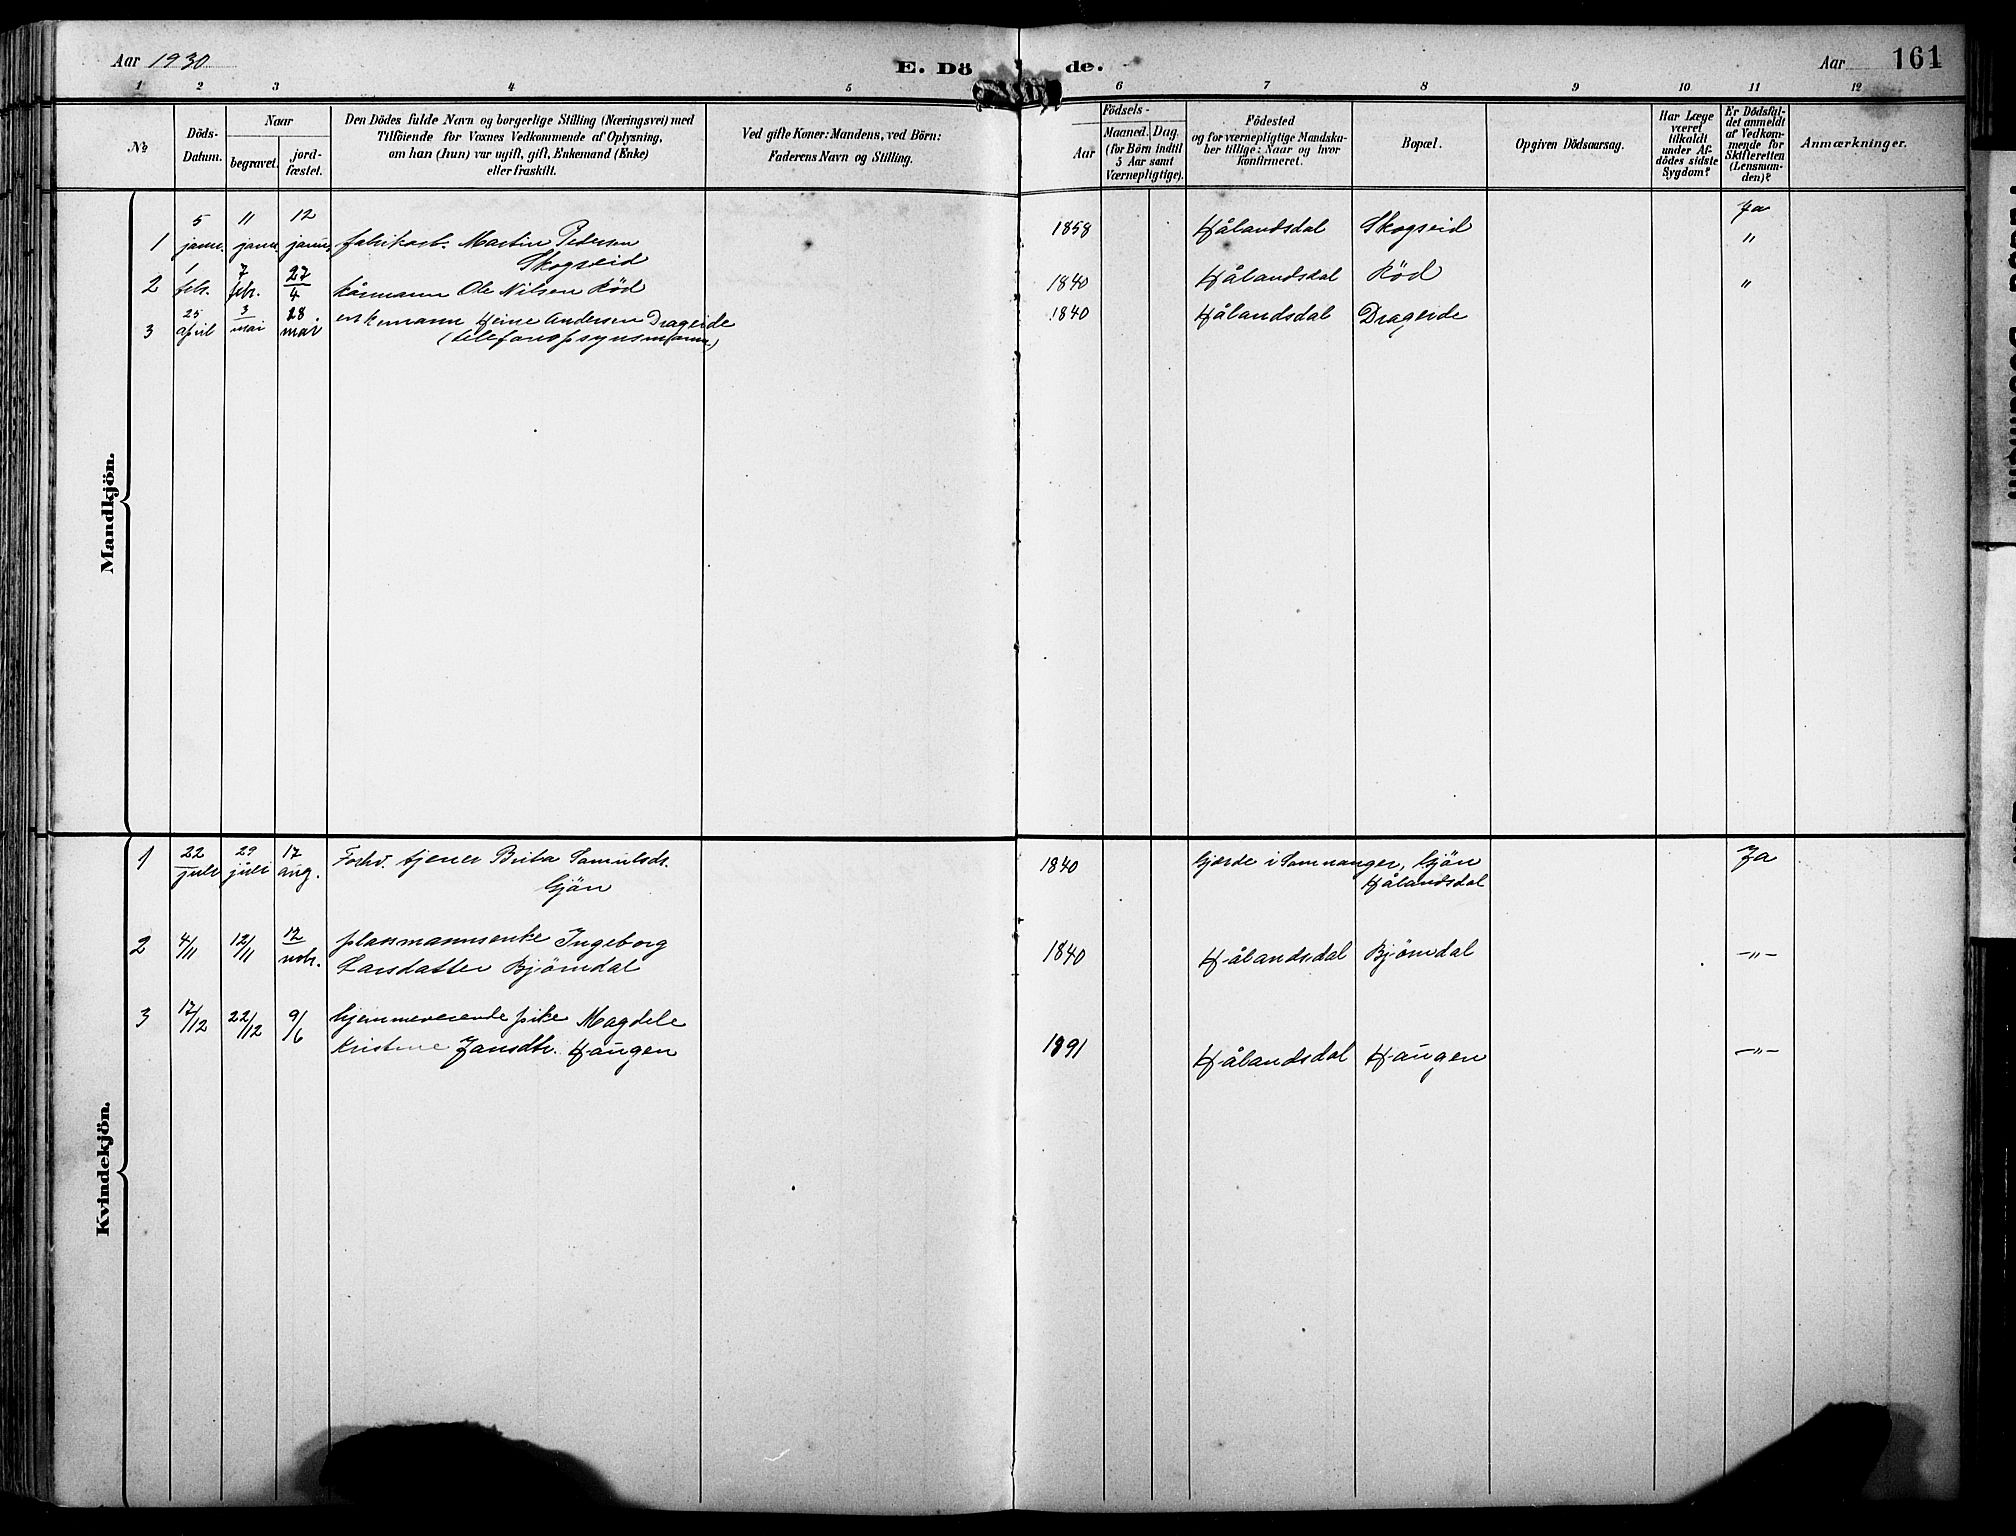 Aar 1930
E. Dö de.
Aar 161
1 2 3 4 5 6 7 8 9 10 11 12
No
Döds-
Datum.
Naar
begravet.
jord-
fæstet.
Den Dödes fulde Navn og borgerlige Stilling (Næringsvei) med
Tilföiende for Voxnes Vedkommende af Oplysning,
om han (hun) var ugift, gift, Enkemand (Enke)
eller fraskilt.
Ved gifte Koner: Mandens, ved Börn:
Faderens Navn og Stilling.
Födsels-
Aar
Maaned. Dag.
(for Börn indtil
5 Aar samt
Værnepligtige).
Födested
og for værnepligtige Mandska-
ber tillige: Naar og hvor
konfirmeret.
Bopæl.
Opgiven Dödsaarsag.
Har Læge
været
tilkaldt
under Af-
dödes sidste
Sygdom?
Er Dödsfal-
det anmeldt
af Vedkom-
mende for
Skifteretten
(Lensman-
den)?
Anmærkninger.
Mandkjön.
5 11 12 Ja
1 janu. janu. janu. fabrikarb. Martin Pedersen 1858 Hålandsdal Skogseid "
Skogseid
1 7 27
2 febr. febr. 4 kårmann Ole Nilsen Röd 1840 Hålandsdal Röd "
25 3 28.
3 april mai mai enkemann Heine Andersen Drageide 1840 Hålandsdal Drageide
(telefonopsynsmann)
Kvindekjön.
1 22 juli 29 juli 17 aug. Forhv. tjener Brita Samulsdr. 1840 Gjerde i Samnanger, Gjön Ja
Gjön Hålandsdal
2 4/11 12/11 12 nvbr. plassmannsenke Ingeborg
Larsdatter Björndal 1840 Hålandsdal Björndal -"-
3 17/12 22/12 9/6 hjemmeverende pike Magdele
Kristine Jansdtr. Haugen 1891 Hålandsdal Haugen -"-